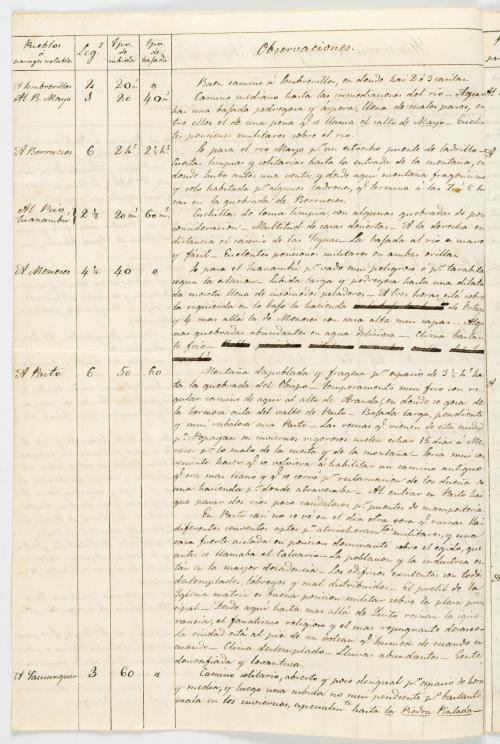 Pueblos ó parages notables | Leg.s | Tpo. de subida | Tpo. de bajada | Observaciones.
A Sombrerillos | 2 | 20 m.' | " | Buen camino á Sombrerillos, en donde hai 2 ó 3 casitas.
Al R. Mayo | 3 | 20 | 40 m.' | Camino mediano hasta las inmediaciones del rio — Aqui
hai una bajada pedregosa y áspera, llena de malos pasos, en-
tre ellos el de una peña q.e se llama el salto de Mayo — Excelen-
tes posiciones militares sobre el rio.
A Berruecos | 6 | 2 h.s | 2½ h.s | Se pasa el rio Mayo p.r un estrecho puente de ladrillo —
Cuestas limpias y solitarias hasta la entrada de la montaña, en
donde hubo antes una venta; y desde aqui montaña fragosisima
y solo habitada p.r algunos ladrones, q.e termina á las 7 ú 8 ho-
ras en la quebrada de Berruecos.
Al Rio Juanambú | 2½ | 20 m.' | 60 m.' | Cuchillas de loma limpia, con algunas quebradas de poca
consideracion — Multitud de casas desiertas — A la derecha en
distancia el caserio de las Yeguas — La bajada al rio es suave
y fácil — Excelentes posiciones militares en ambas orillas.
A Meneses | 4½ | 40 | " | Se pasa el Juanambú p.r vado mui peligroso ó p.r tarabita
segun la estacion — Subida larga y pedregosa hasta una dilata-
da meseta llena de incómodos peladeros — A tres horas está sobre
la izquierda en lo bajo la hacienda de Ortega
y 4 mas allá la de Meneses con casa alta mui capaz — Algu-
nas quebradas abundantes en agua deliciosa — Clima bastan-
te frio —
A Pasto | 6 | 50 | 60 | Montaña despoblada y fragosa p.r espacio de 3½ h.s has-
ta la quebrada del Obispo — Temperamento mui frio con re-
gular camino de aqui al alto de Aranda, en donde se goza de
la hermosa vista del valle de Pasto — Bajada larga, pendiente
y mui rabalosa acia Pasto — Las recuas q.e vienen de esta ciudad
p.a Popayan en inviernos rigorosos suelen echar 15 dias á Mene-
ses p.r lo malo de la cuesta y de la montaña — Seria mui con-
veniente hacer q.e se volviera á habilitar un camino antiguo
q.e era mas llano y q.e se cerró p.r reclamacion de los dueños de
una hacienda p.r donde atravesaba — Al entrar en Pasto hai
que pasar dos rios poco caudalosos p.r puentes de mamposteria.
En Pasto casi no se ve en el dia otra cosa q.e ruinas. Hai
diferentes conventos aptos p.a atrincheramtos militares, y una
casa fuerte aislada en posicion dominante sobre el egido, que
antes se llamaba el Calvario — La poblacion y la industria es-
tán en la mayor decadencia — Los edificios existentes son todos
destemplados, lobregos y mal distribuidos — El pretil de la
Iglesia matriz es buena posicion militar sobre la plaza prin-
cipal — Desde aqui hasta mas allá de Quito reinan la igno-
rancia, el fanatismo religioso y el mas repugnante desaseo —
La ciudad está al pié de un volcan q.e humea de cuando en
cuando — Clima destemplado — Lluvias abundantes — Gente
desconfiada y levantisca.
A Yacuanquer | 3 | 60 | " | Camino solitario, abierto y poco desigual p.r espacio de hora
y media, y luego una subida no mui pendiente p.o bastante
mala en los inviernos, especialm.te hasta la Piedra Pintada —